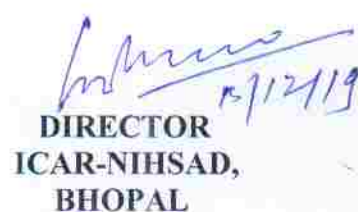 /12/19
DIRECTOR
ICAR-NIHSAD,
BHOPAL